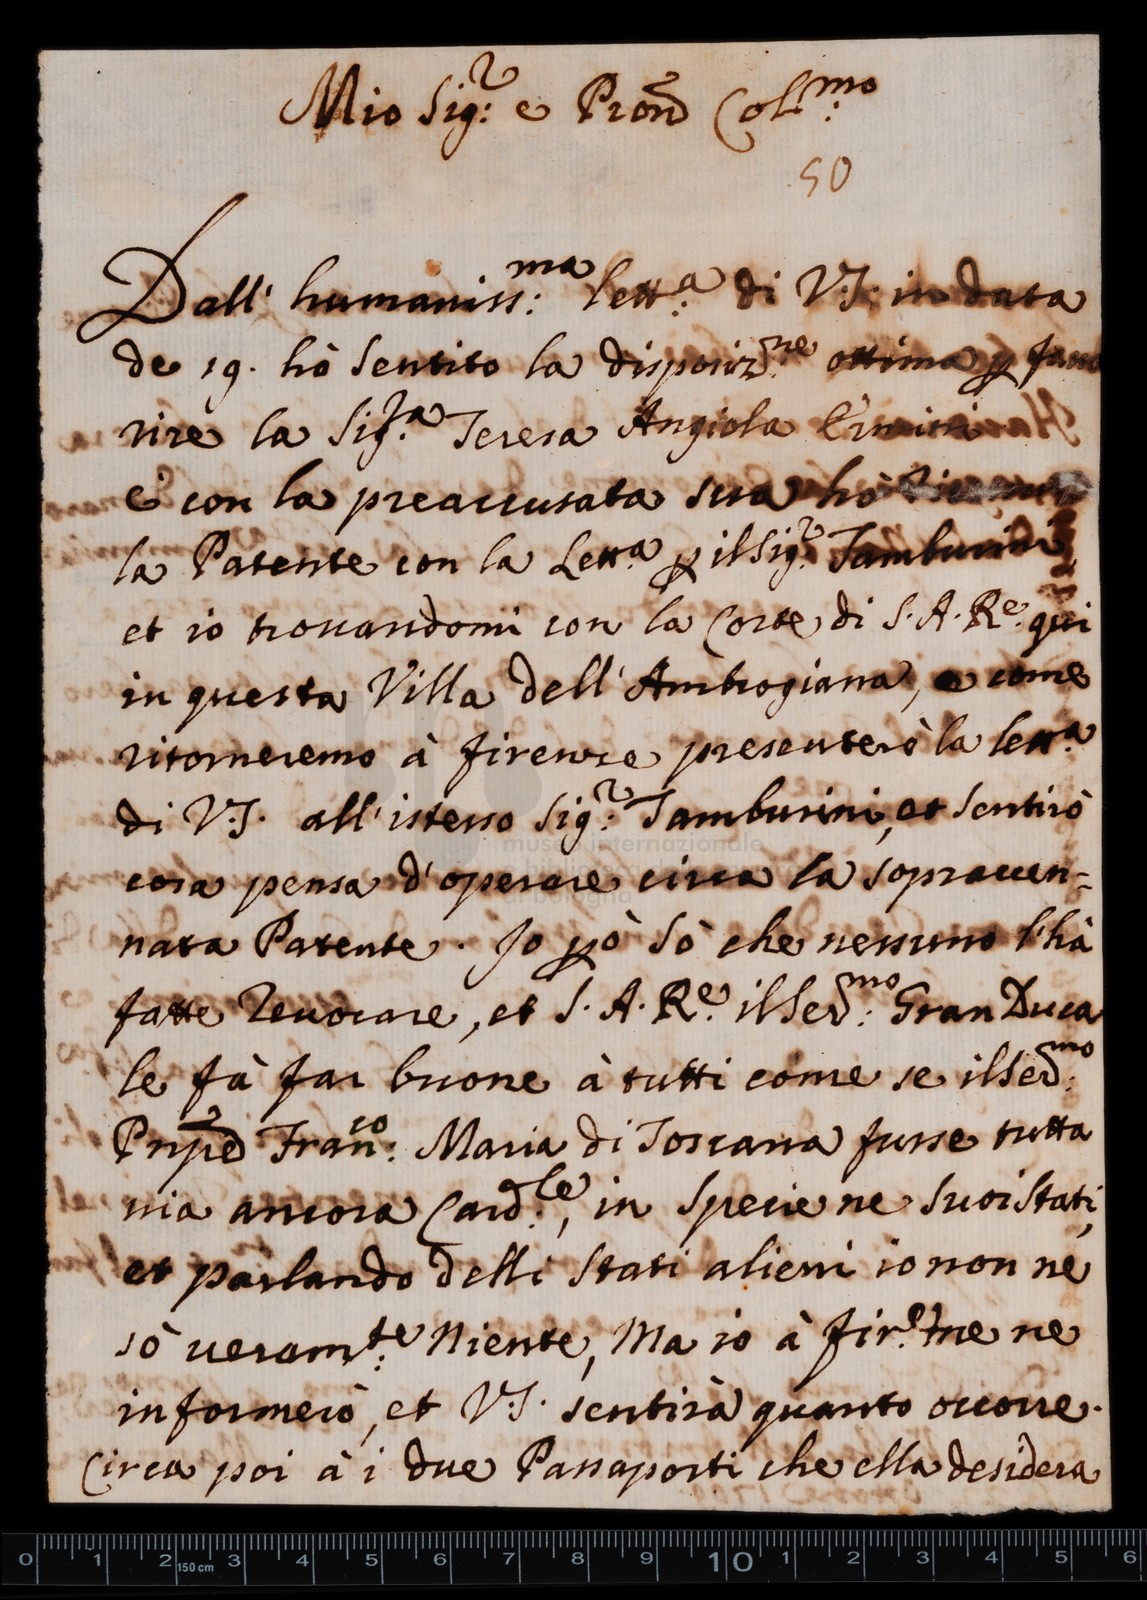 Mio Sig:r e Pron Col:mo
50
Dall' humaniss:ma lett:a di V.S. in data
de 19. hò sentito la disposiz:ne ottima p favo
rire la Sig:ra Teresa Angiola Ermini
e con la preaccusata sua hò
la Patente con la Lett:a p il Sig:r Tamburini,
et io trovandomi con la Corte di S. A. Re: qui
in questa Villa dell' Ambrogiana, e come
ritorneremo à firenze presenterò la lett:a
di V.S. all' istesso Sig:r Tamburini, et sentirò
cosa pensa d' operare circa la sopraccen=
nata Patente. Io pò sò che nessuno l'hà
fatte revocare, et S. A. Re: il Ser:mo Gran Duca
le fà far buone à tutti come se il Ser:mo
Prnpe Fran:co Maria di Toscana fusse tutta
via ancora Card:le, in specie ne suoi stati,
et parlando delli stati alieni io non ne
sò veram:te niente, Ma io à fir:ze me ne
informerò, et V.S. sentirà quanto occorre.
Circa poi à i due Passaporti che ella desidera
0 1 2 3 4 5 6 7 8 9 10 1 2 3 4 5 6
150 cm
museo internazionale
e biblioteca della musica
di bologna